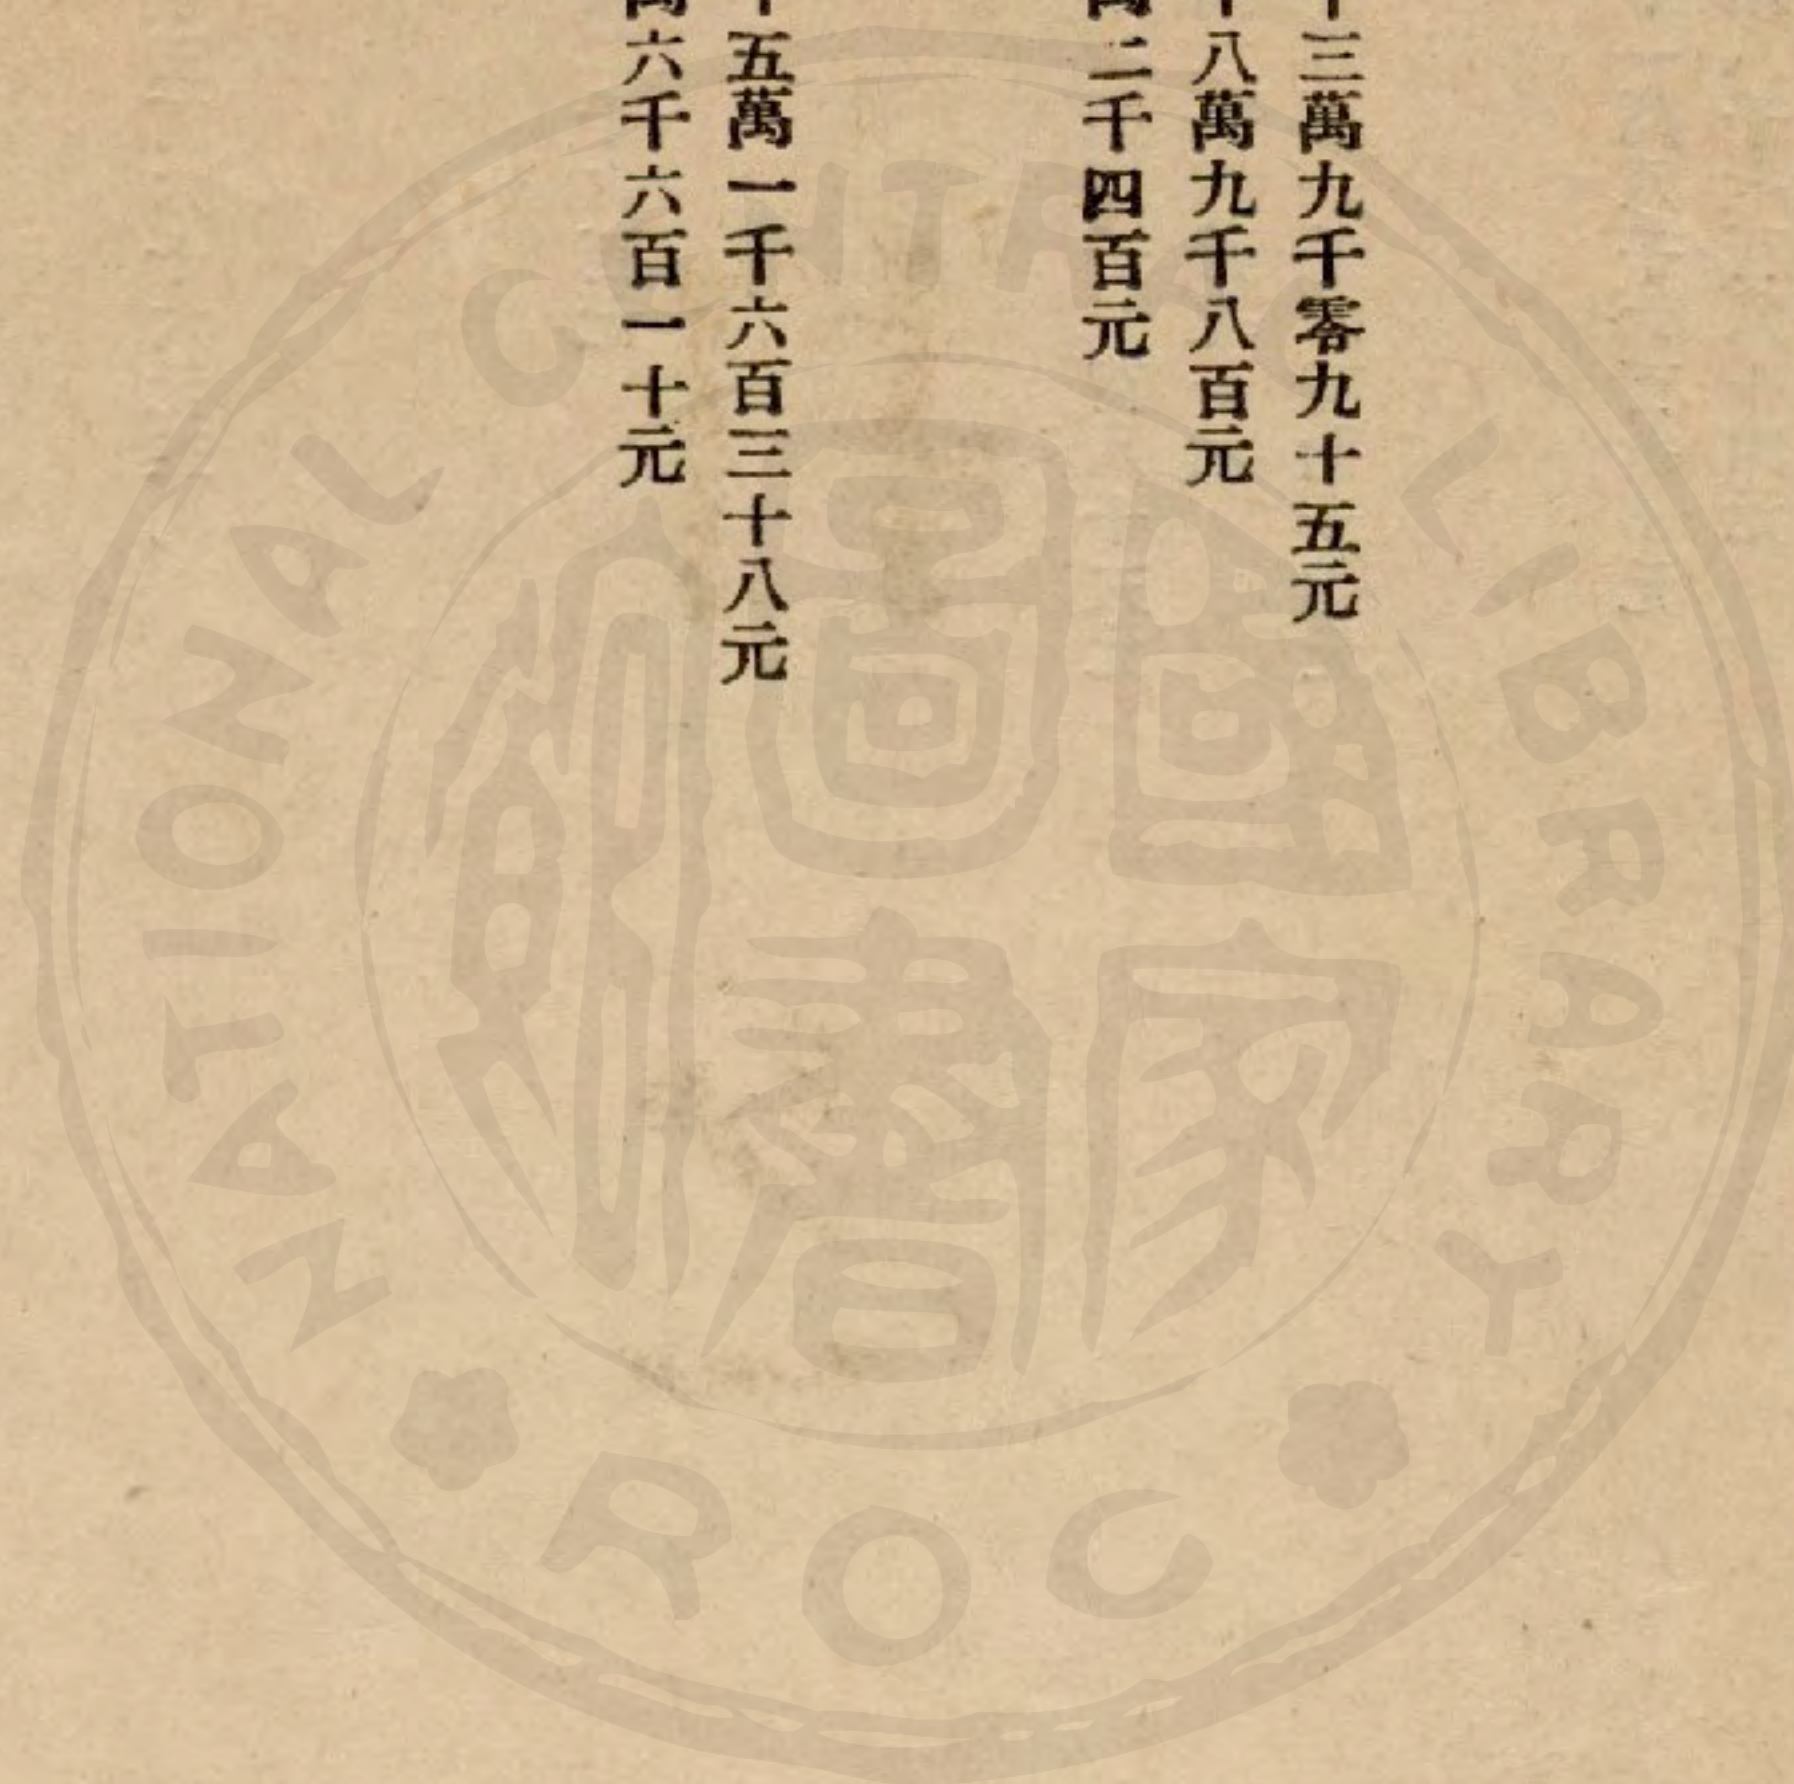 十三萬九千零九十五元
十八萬九千八百元
萬二千四百元
十五萬一千六百三十八元
萬六千六百一十元
NATIONAL CENTRAL LIBRARY
國家圖書館
ROC